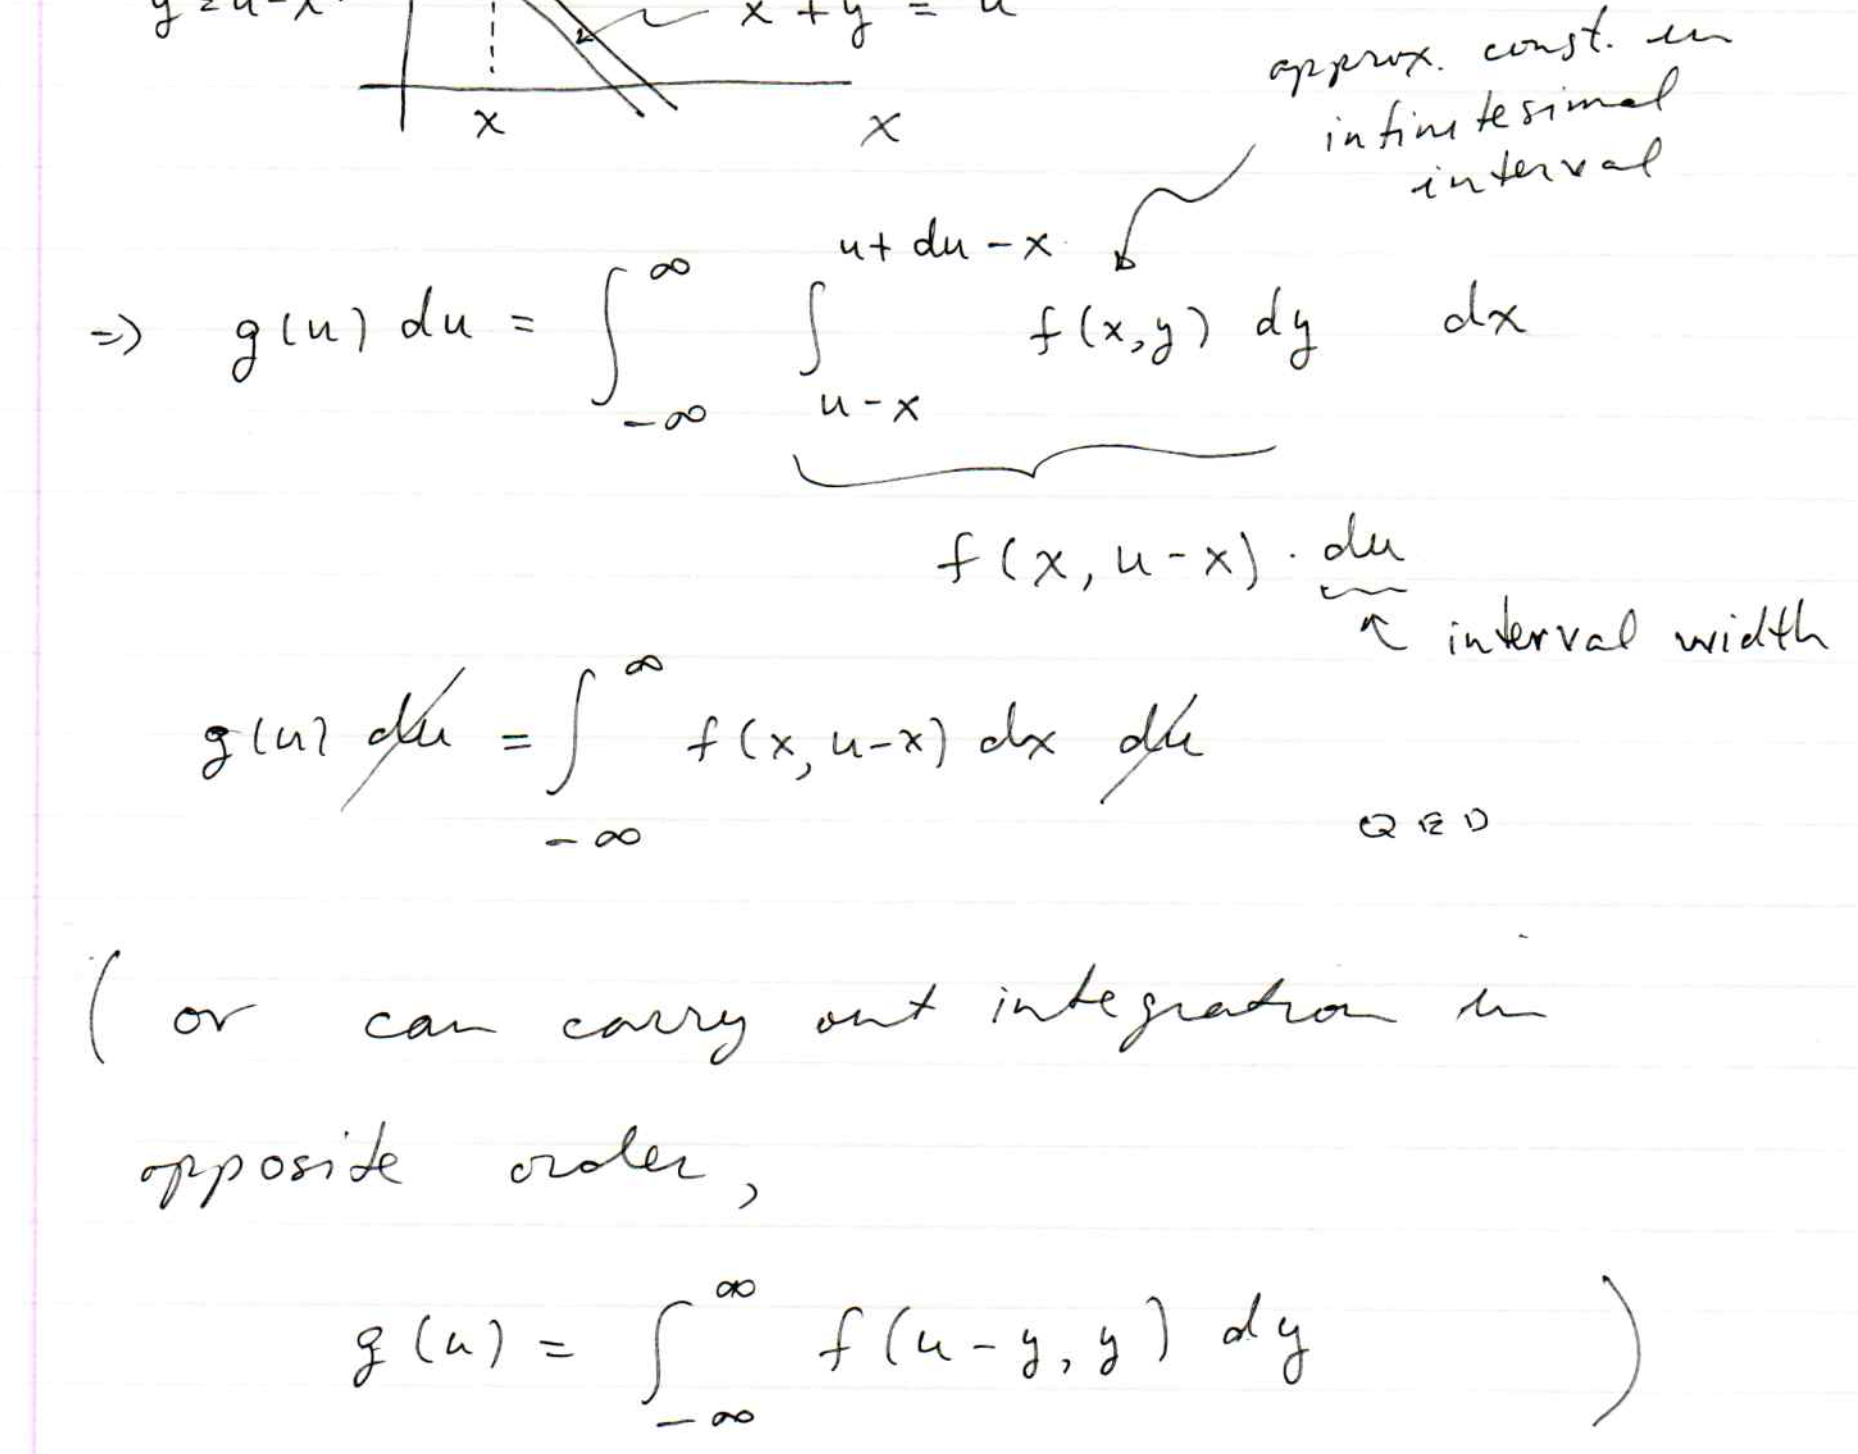 y = u - x
x + y = u
x
x
approx. const. in
infinitesimal
interval
u + du - x
⇒ g(u) du = ∫_{-∞}^{∞} ∫_{u-x}^{u+du-x} f(x,y) dy dx
f(x, u - x) · du
↖ interval width
g(u) du = ∫_{-∞}^{∞} f(x, u-x) dx du
QED
( or can carry out integration in
opposite order,
g(u) = ∫_{-∞}^{∞} f(u - y, y) dy )